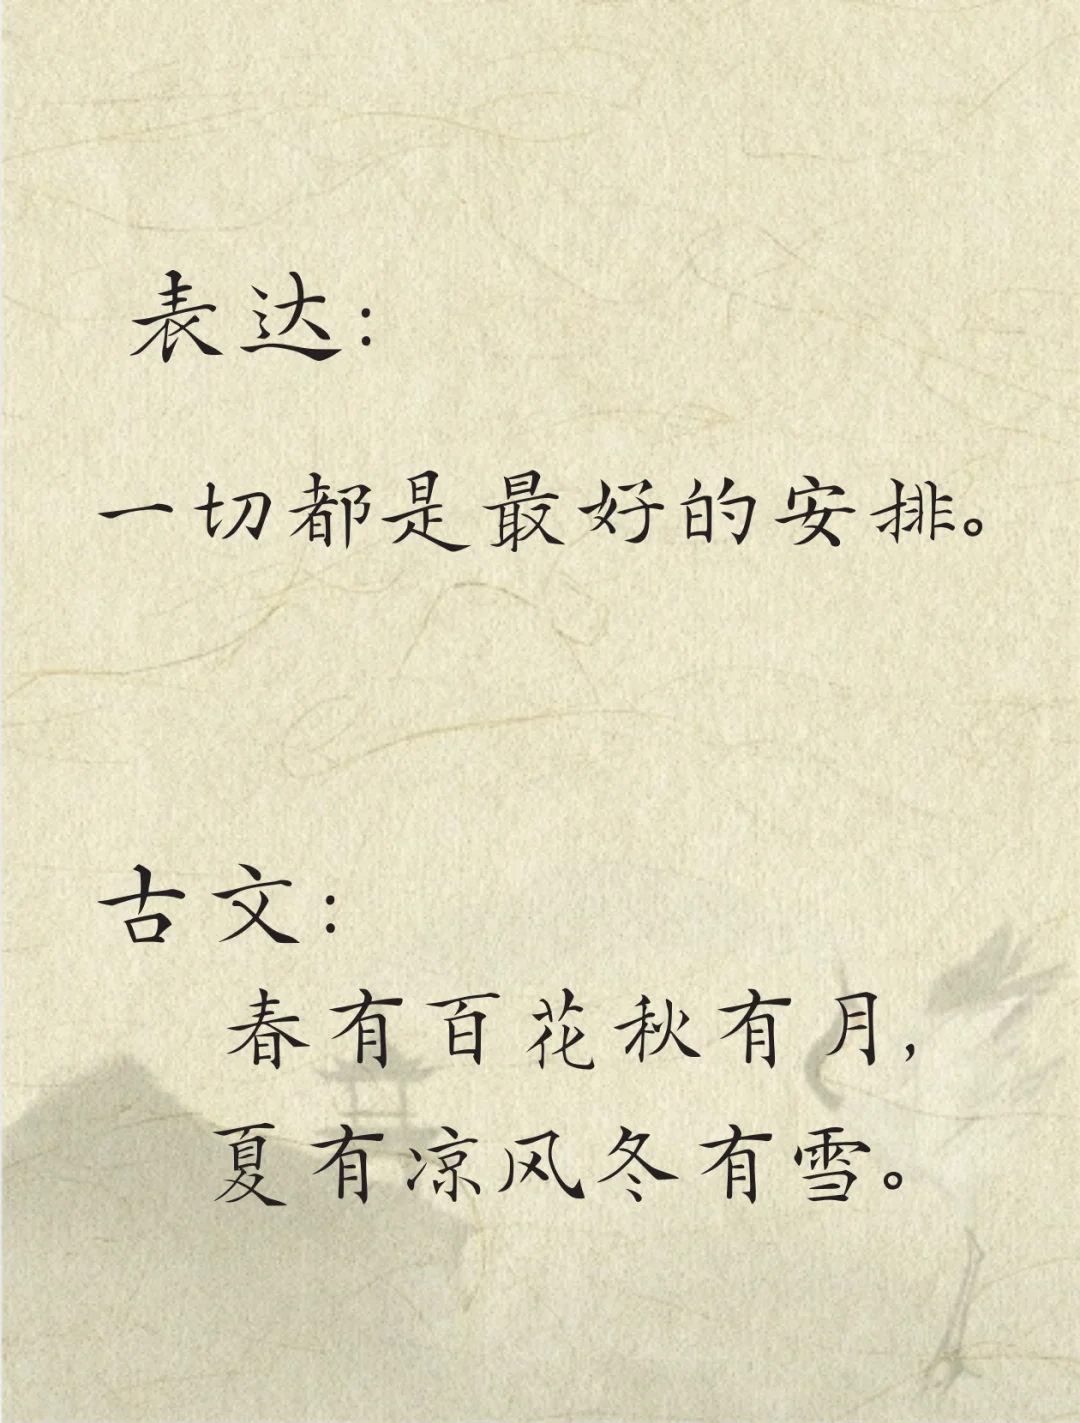 表达：
一切都是最好的安排。
古文：
春有百花秋有月，
夏有凉风冬有雪。